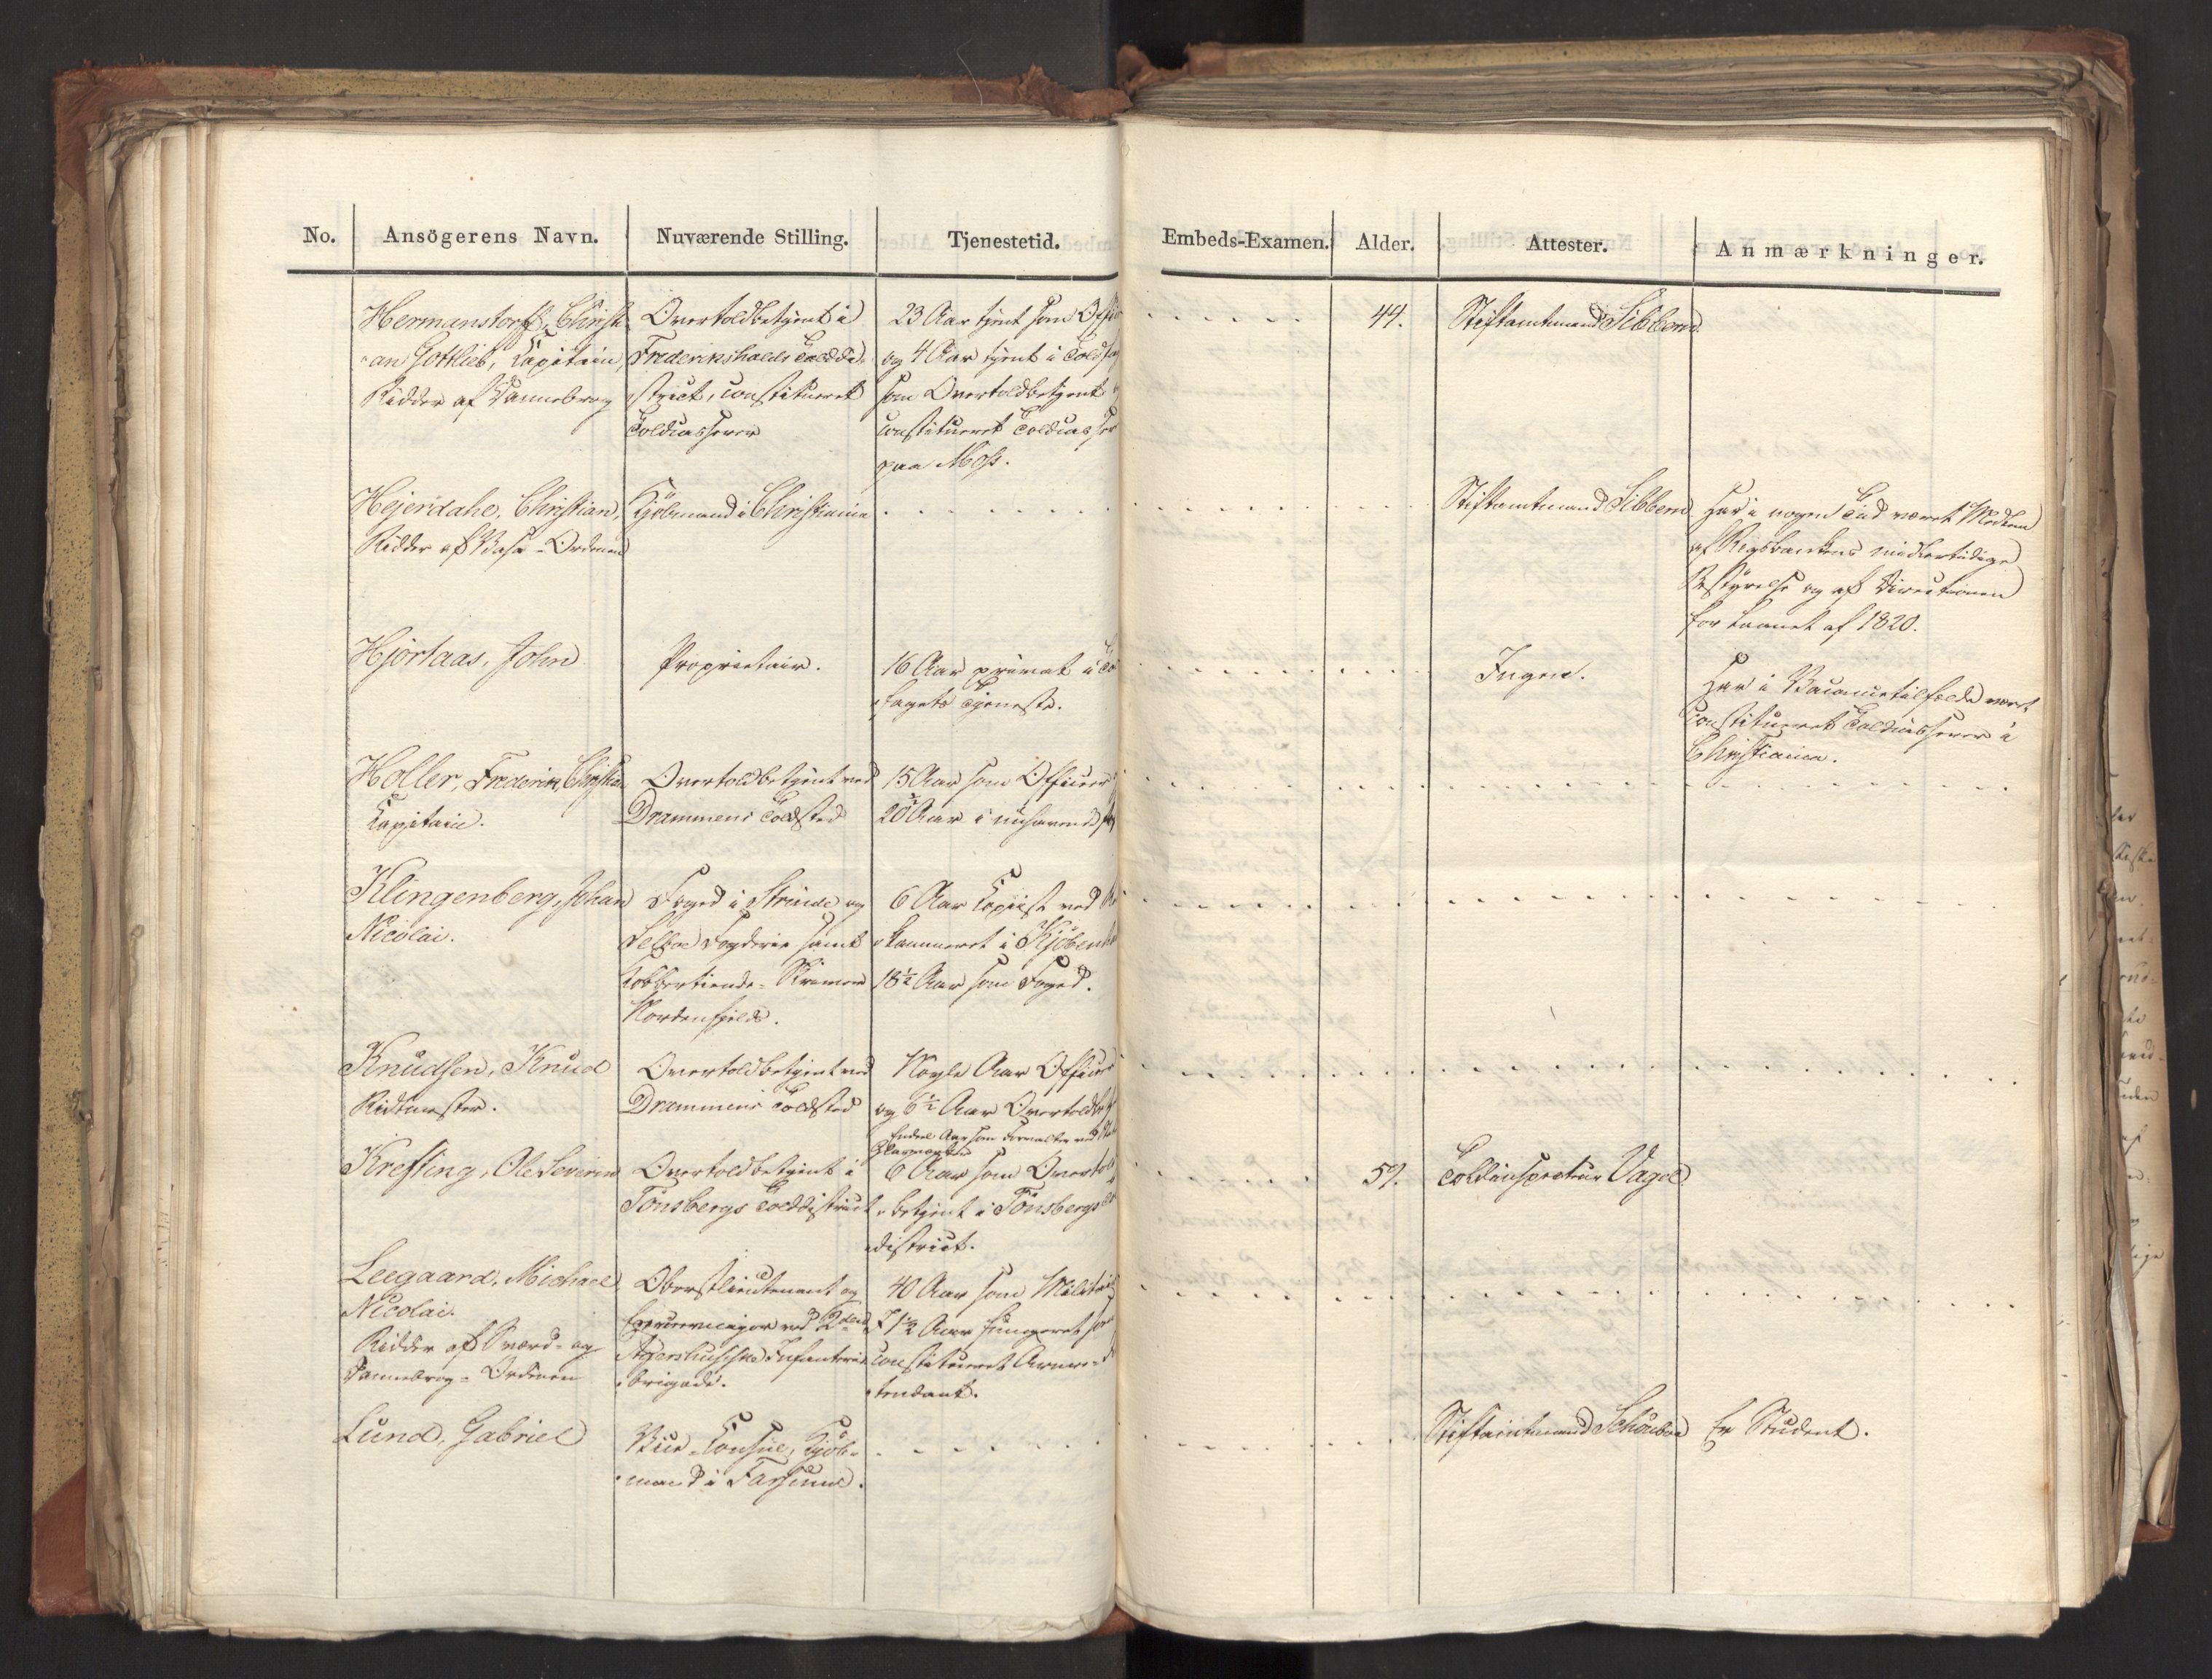 No. Ansögerens Navn. Nuværende Stilling. Tjenestetid. Embeds-Examen. Alder. Attester. Anmærkninger.
Hermanstorff, Christi
-an Gottlieb, Kapitain,
Ridder af Dannebrog
Overtoldbetjent i
Frederikshalds Tolddi-
strict, constitueret
Toldcasserer
23 Aar tjent som
og 4 Aar tjent i
som Overtoldbetjent
constitueret
paa Moss.
44.
Stiftamtmand Sibbern
Hejerdahl, Christian,
Ridder af Vasa-Ordenen
Kjöbmand i Christiania
Stiftamtmand Sibbern
Har i nogen Tid været Medlem
af Rigsbankens midlertidige
Bestyrelse og af Directionen
for Laanet af 1820.
Hjortaas, John
Proprietair.
16 Aar privat i
-fagets Tjeneste.
Ingen.
Har i Vacancetilfælde været
Constitueret Toldcasserer i
Christiania.
Holler, Frederik, Christian
Kapitain.
Overtoldbetjent ved
Drammens Toldsted
15 Aar som Officeer
20 Aar i
Klingenberg, Johan
Nicolai.
Foged i Strinde og
Selboe Fogderie samt
Kobbertiende-
Nordenfields.
6 Aar Copiist ved
-kammeret i
18½ Aar som Foged.
Knudsen, Knud
Ridtmester.
Overtoldbetjent ved
Drammens Toldsted
Nogle Aar
og 6½ Aar
Krefting, Ole Severin
Overtoldbetjent i
Tönsbergs Tolddistrict
Endeel Aar som Forvalter ved
6 Aar som
-betjent i Tönsbergs
-district.
59.
Toldinspecteur Vagel
Leegaard, Michael
Nicolai.
Ridder af Sværd- og
Dannebrog-Ordenen
Oberstlieutenant og
ved 2den
Aggershusiske Infanterie
-brigade.
40 Aar som
Aar fungeret som
constitueret
-tendant.
Lund, Gabriel
Vice-Consul, Kjöb-
-mand i Farsund.
Stiftamtmand Schouboe
Er Student.